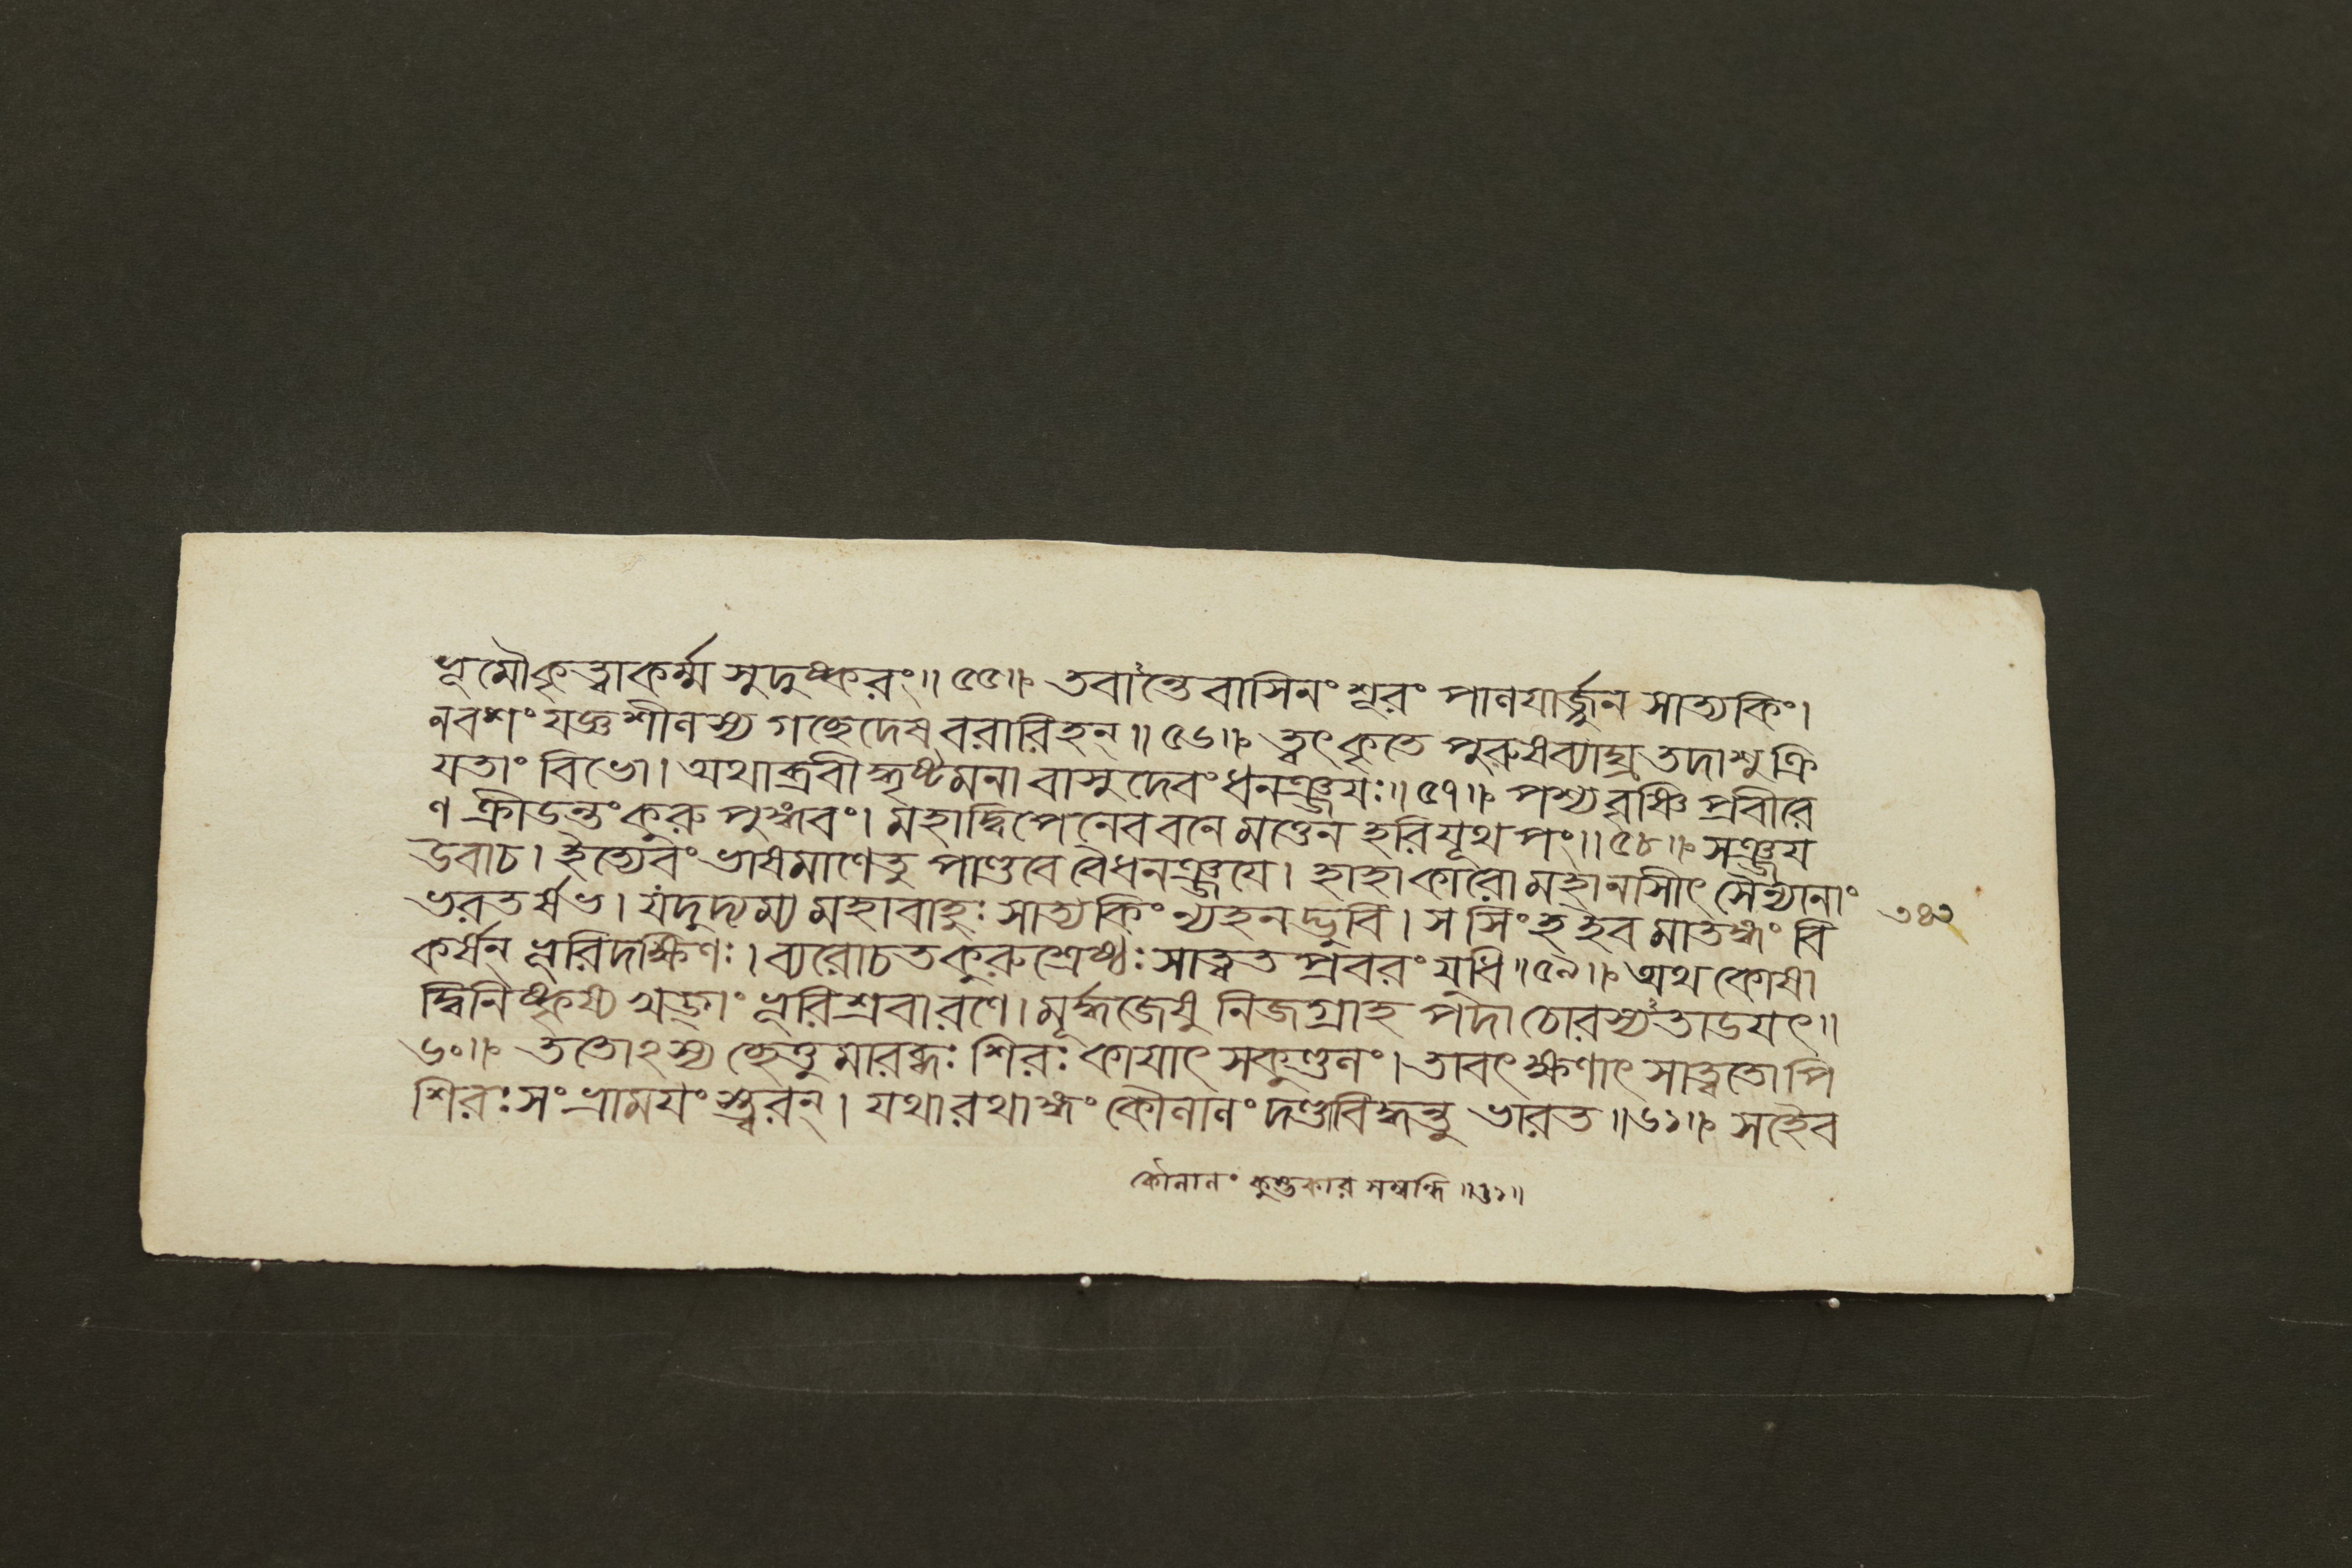 ভূমৌকৃত্বাকর্ম্ম সুদুষ্করং॥ ৫৫॥ তবান্তেবাসিনং শূরং পালয়ার্জ্জুন সাত্যকিং।
নবশং যজ্ঞশীলস্য গচ্ছেদেষ বরারিহন্॥ ৫৬॥ ত্বৎকৃতে পুরুষব্যাঘ্র তদাশু ক্রি
যতাং বিভো। অথাব্রবীদ্ধৃষ্টমনা বাসুদেবং ধনঞ্জযঃ॥ ৫৭॥ পশ্যবৃষ্ণি প্রবীরে
ণ ক্রীডন্তং কুরু পুঙ্গবং। মহাদ্বিপেনেব বনে মত্তেন হরিযূথ পং॥ ৫৮॥ সঞ্জয
উবাচ। ইত্যেবং ভাষমাণেতু পাণ্ডবে বৈধনঞ্জযে। হাহাকারো মহানাসীৎ সৈন্যানাং
ভরতর্ষভ। যদুদ্যম্য মহাবাহুঃ সাত্যকিং ন্যহনদ্ভুবি। স সিংহ ইব মাতঙ্গং বি
কর্ষন্ ভূরিদক্ষিণঃ। ব্যরোচত কুরুশ্রেষ্ঠঃ সাত্বত প্রবরং যুধি॥ ৫৯॥ অথ কোষা
দ্বিনিষ্কৃষ্য খড্গং ভূরিশ্রবারণে। মূর্দ্ধজেষু নিজগ্রাহ পদা চোরস্যতাডযৎ॥
৬০॥ ততোঽস্য চ্ছেত্তুমারব্ধঃ শিরঃ কাযাৎ সকুণ্ডলং। তাবৎক্ষণাৎ সাত্বতোপি
শিরঃ সংভ্রাময়ংস্ত্বরন্। যথা রথাঙ্গং কৌলালং দণ্ডবিদ্ধন্তু ভারত॥ ৬১॥ সহৈব
৩৪২
কৌলালং কুম্ভকার সম্বন্ধি॥ ৬১॥